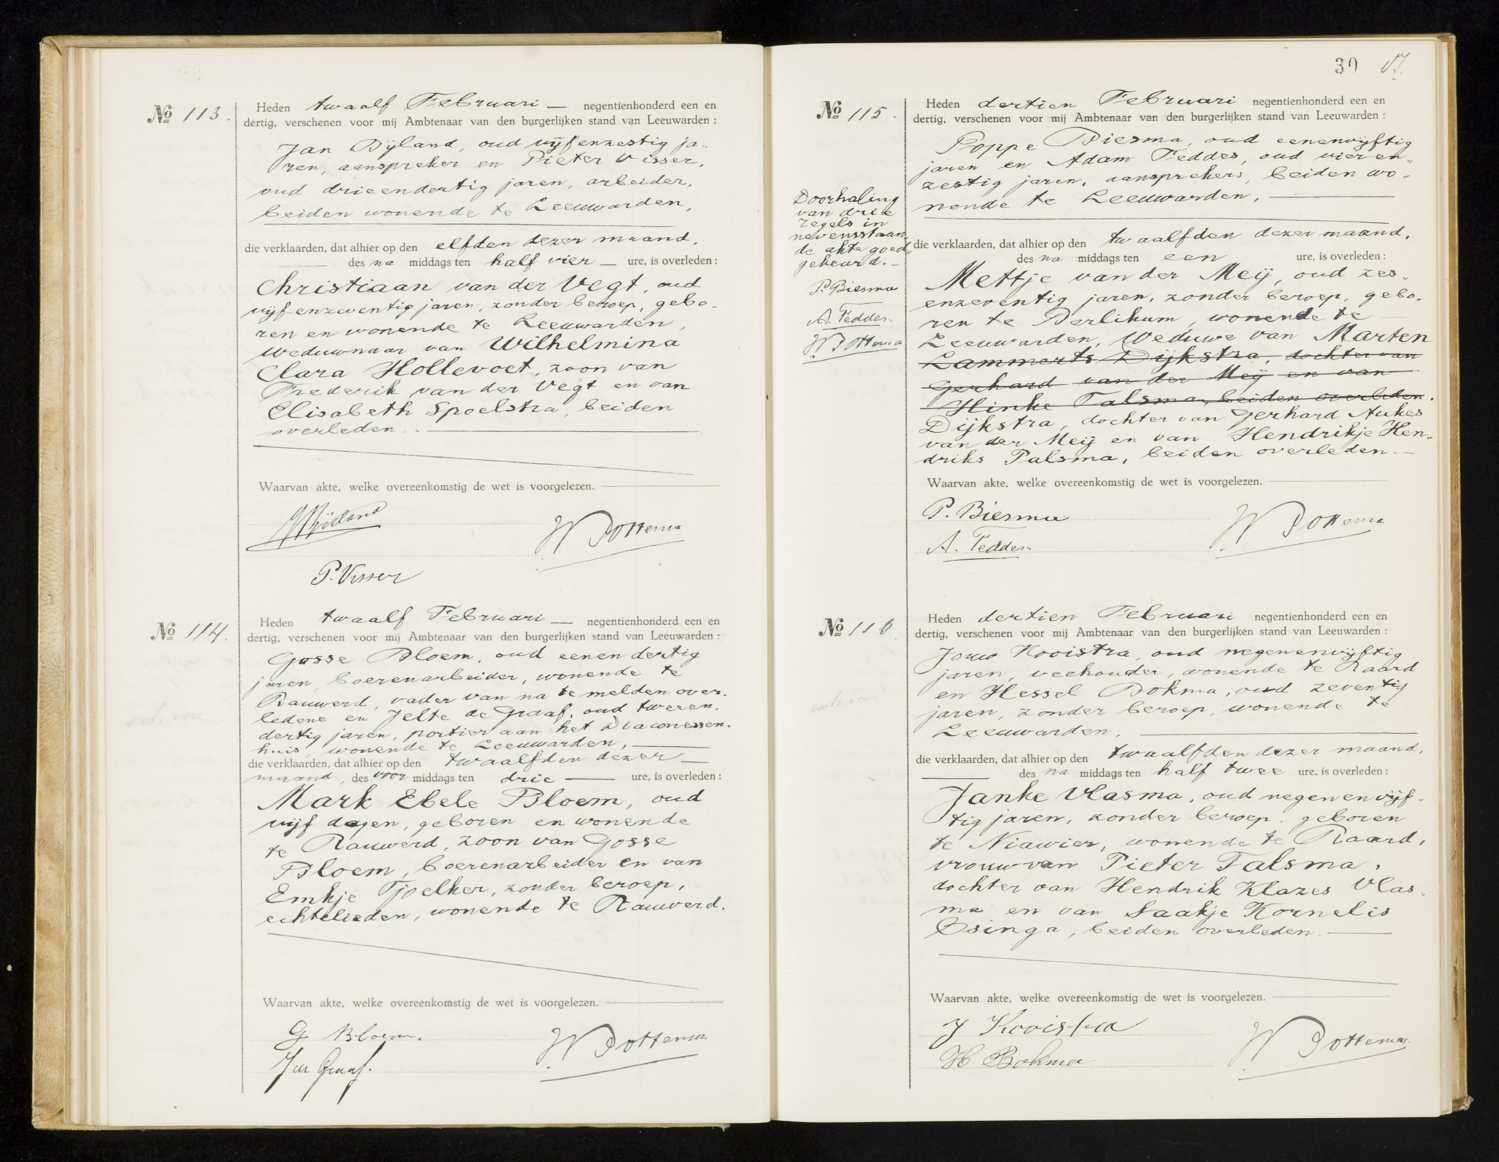 No 113.
Heden twaalf Februari — negentienhonderd een en
dertig, verschenen voor mij Ambtenaar van den burgerlijken stand van Leeuwarden :
Jan Bijland, oud vijfenzestig ja-
ren, aanspreker en Pieter Visser,
oud drieendertig jaren, arbeider,
beiden wonende te Leeuwarden,
die verklaarden, dat alhier op den elfden dezer maand,
des na middags ten half vier — ure, is overleden :
Christiaan van der Vegt, oud
vijfenzeventig jaren, zonder beroep, gebo-
ren en wonende te Leeuwarden,
weduwnaar van Wilhelmina
Clara Hollevoet, zoon van
Frederik van der Vegt en van
Elisabeth Spoelstra, beiden
overleden. —
Waarvan akte, welke overeenkomstig de wet is voorgelezen.
J Bijland
W Dottema
P. Visser
No 114.
Heden twaalf Februari — negentienhonderd een en
dertig, verschenen voor mij Ambtenaar van den burgerlijken stand van Leeuwarden :
Gosse Bloem, oud eenendertig
jaren, boerenarbeider, wonende te
Rauwerd, vader van na te melden over-
ledene en Jelte de Graaf, oud tweeen-
dertig jaren, portier aan het Diaconessen-
huis, wonende te Leeuwarden, —
die verklaarden, dat alhier op den twaalfden dezer —
maand, des voor middags ten drie — ure, is overleden :
Mark Ebele Bloem, oud
vijf dagen, geboren en wonende
te Rauwerd, zoon van Gosse
Bloem, boerenarbeider en van
Emkje Tjoelker, zonder beroep,
echtelieden, wonende te Rauwerd.
Waarvan akte, welke overeenkomstig de wet is voorgelezen.
G Bloem.
W Dottema
J de Graaf.
30
No 115.
Heden dertien Februari negentienhonderd een en
dertig, verschenen voor mij Ambtenaar van den burgerlijken stand van Leeuwarden :
Poppe Biesma, oud eenenvijftig
jaren en Adam Feddes, oud vieren-
zestig jaren, aansprekers, beiden wo-
nende te Leeuwarden, —
Doorhaling
van drie
regels in
nevensstaan
de akte goed
gekeurd. —
P. Biesma
A. Feddes.
W Dottema
die verklaarden, dat alhier op den twaalfden dezer maand,
des na middags ten een ure, is overleden :
Mettje van der Meij, oud zes-
enzeventig jaren, zonder beroep, gebo-
ren te Berlikum, wonende te
Leeuwarden, weduwe van Marten
Lammerts Dijkstra, dochter van
Gerhard van der Meij en van
Hinke Talsma, beiden overleden.
Dijkstra, dochter van Gerhard Aukes
van der Meij en van Hendrikje Hen-
driks Palsma, beiden overleden. —
Waarvan akte, welke overeenkomstig de wet is voorgelezen.
P. Biesma
W Dottema
A. Feddes.
No 116.
Heden dertien Februari negentienhonderd een en
dertig, verschenen voor mij Ambtenaar van den burgerlijken stand van Leeuwarden :
Jouw Kooistra, oud negenenvijftig
jaren, veehouder, wonende te Raard
en Hessel Bokma, oud zeventig
jaren, zonder beroep, wonende te
Leeuwarden, —
die verklaarden, dat alhier op den twaalfden dezer maand,
— des na middags ten half twee ure, is overleden :
Janke Vlasma, oud negenenvijf-
tig jaren, zonder beroep, geboren
te Niawier, wonende te Raard,
vrouw van Pieter Talsma,
dochter van Hendrik Klazes Vlas-
ma en van Saakje Kornelis
Osinga, beiden overleden. —
Waarvan akte, welke overeenkomstig de wet is voorgelezen.
J Kooistra
W Dottema
H Bokma